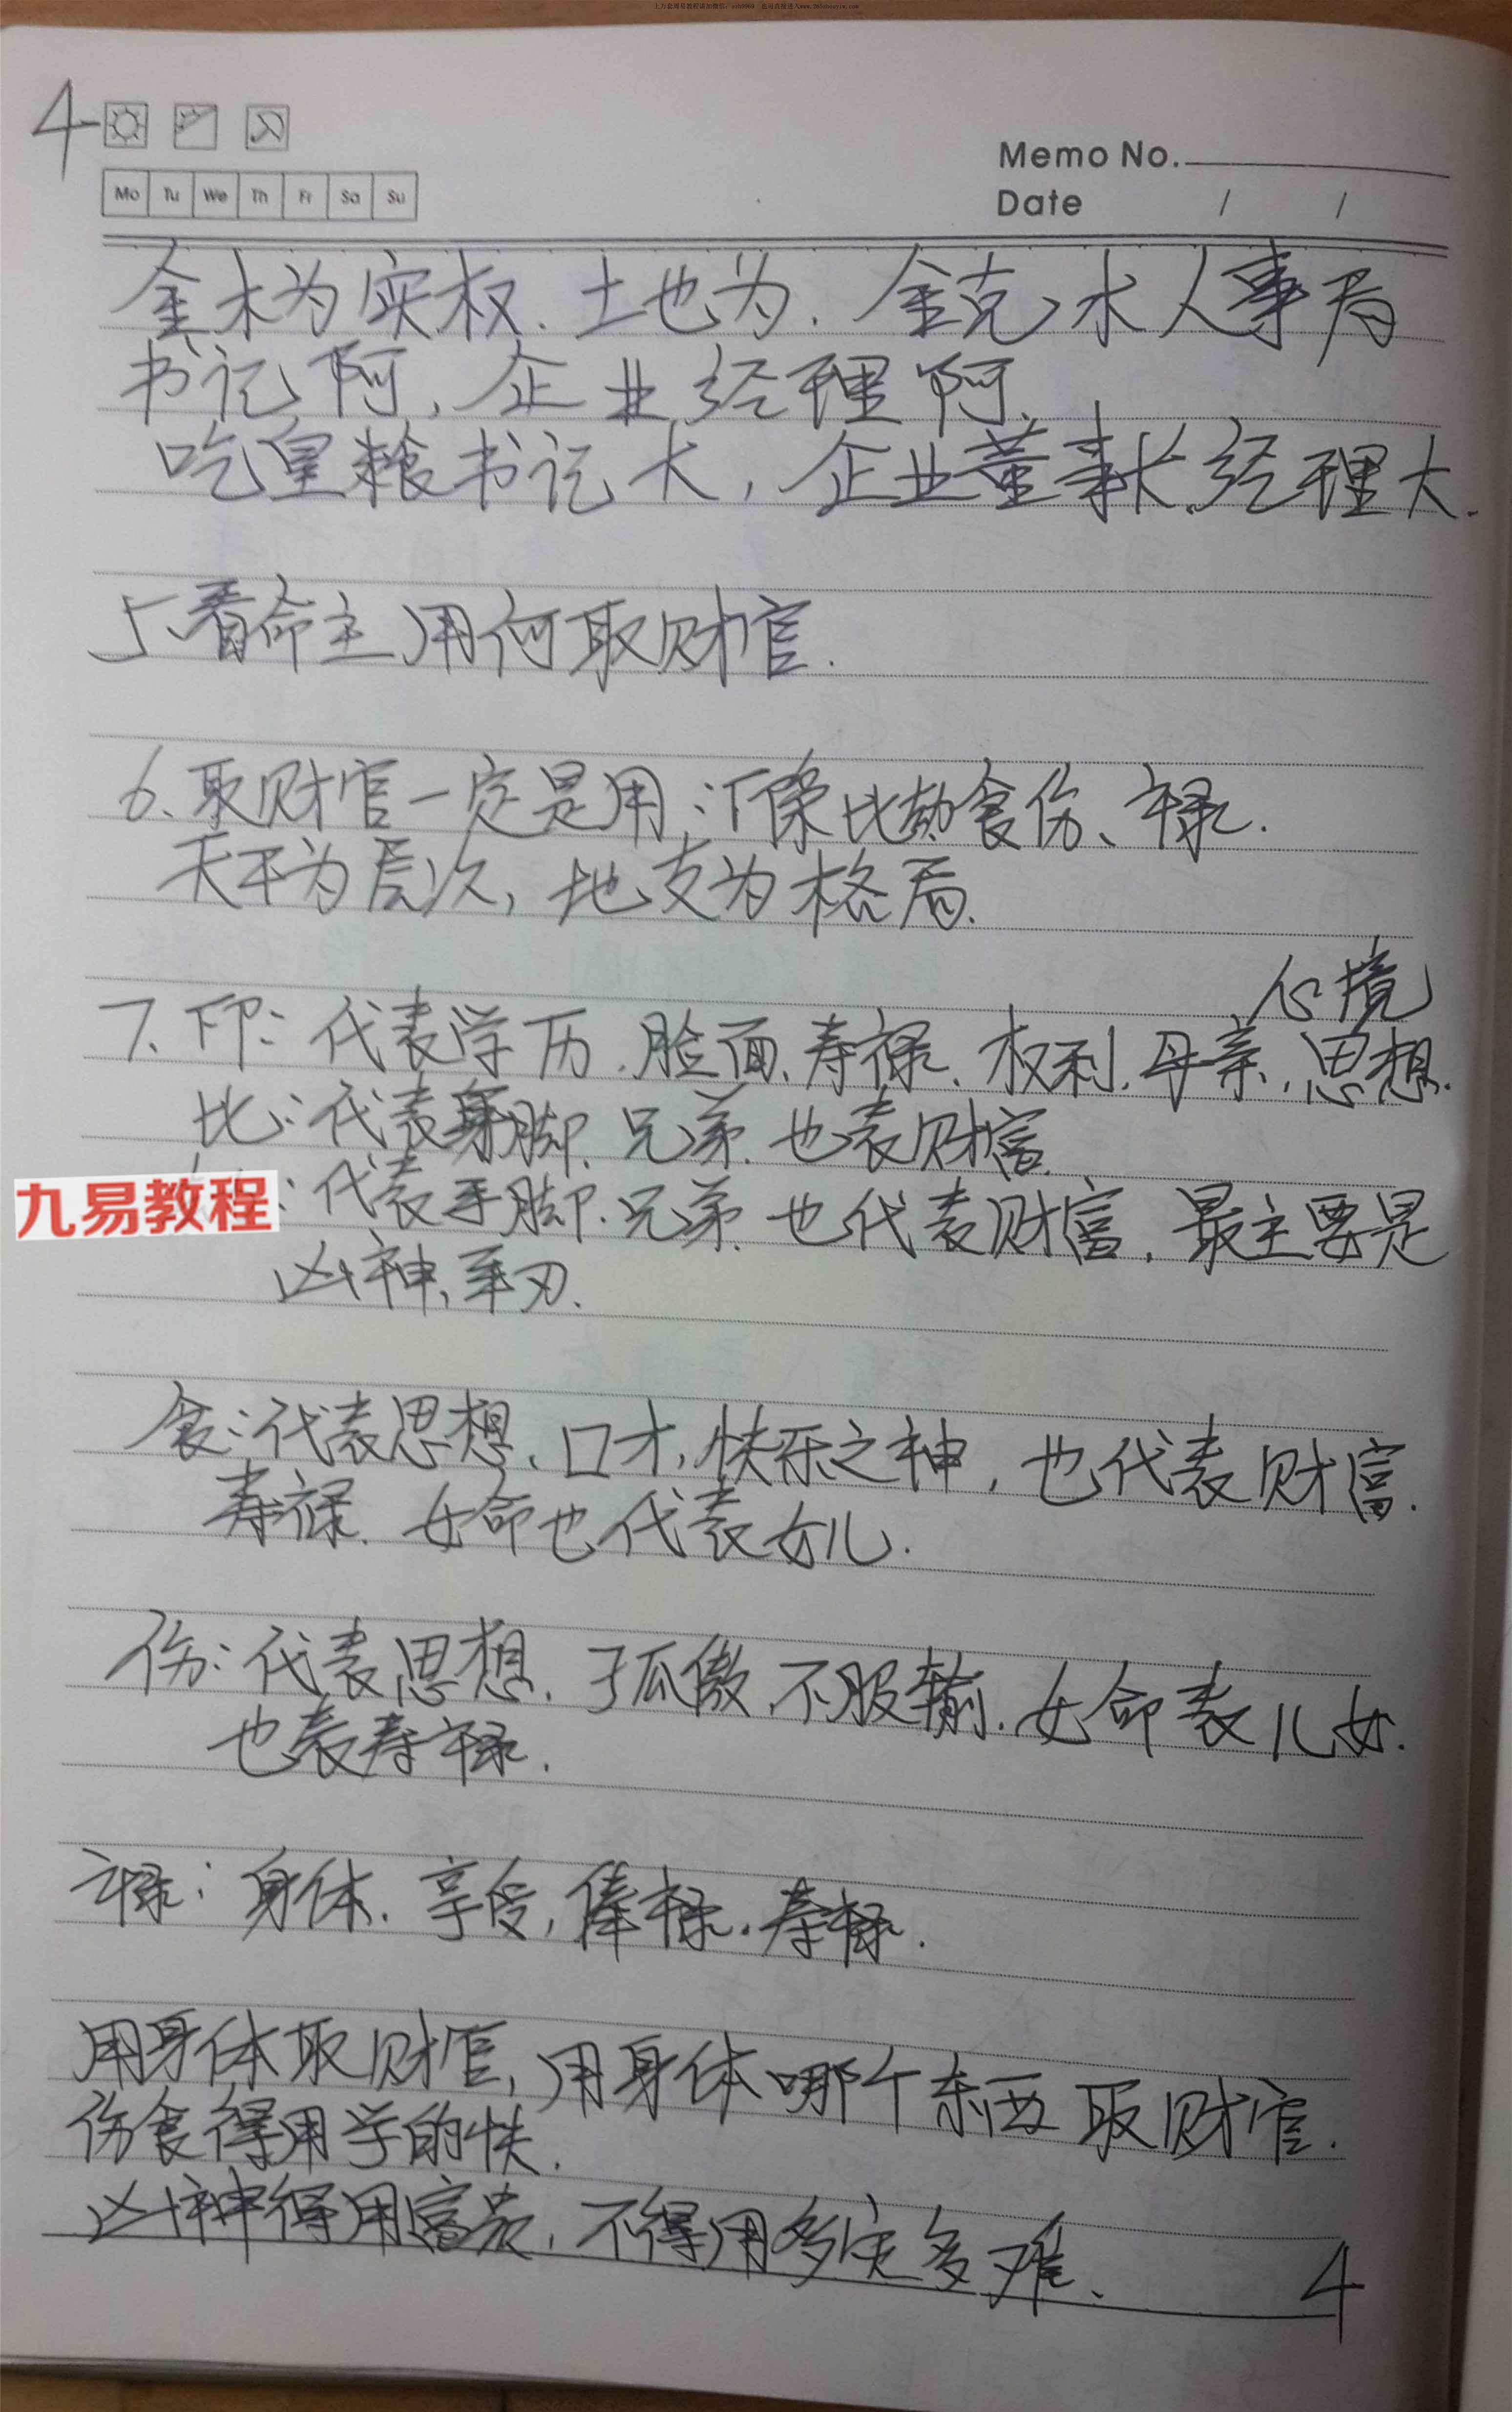 4
Mo Tu We Th Fr Sa Su
Memo No.
Date / /
金木为实权.土也为.金克木人事局
书记啊,企业经理啊.
吃皇粮书记大,企业董事长.经理大.
5、看命主用何取财官.
6、取财官一定是用:印枭比劫食伤、禄.
天干为层次,地支为格局.
心境
7、印:代表学历.脸面、寿禄.权利.母亲.思想.
比:代表手脚.兄弟.也表财富.
:代表手脚.兄弟.也代表财富.最主要是
九易教程
凶神、羊刃.
食:代表思想.口才,快乐之神,也代表财富.
寿禄.女命也代表女儿.
伤:代表思想.孤傲.不服输.女命表儿女.
也表寿禄.
禄:身体.享受,俸禄.寿禄.
用身体取财官,用身体哪个东西取财官.
伤食得用学的快.
凶神得用富贵,不得用多灾多难、
4